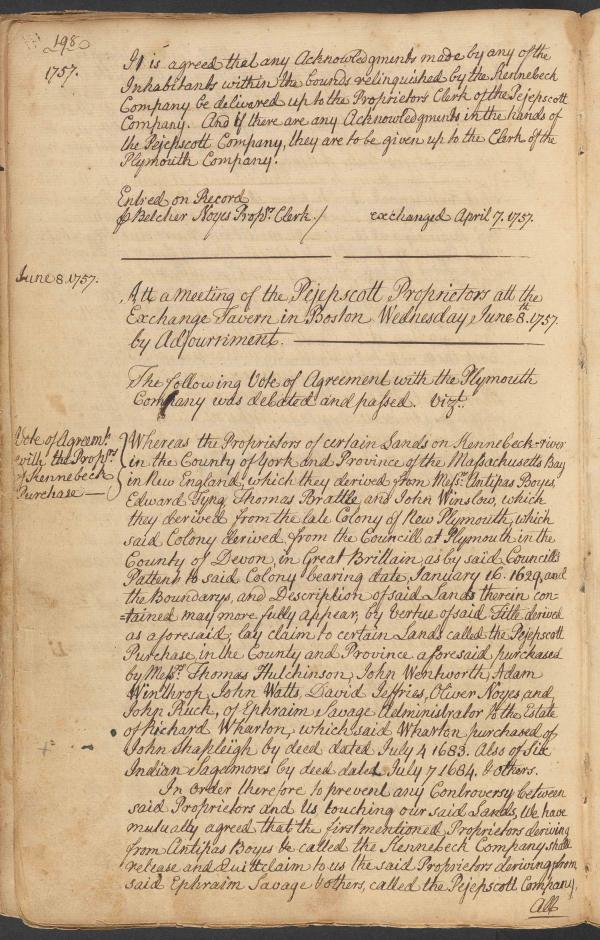 198
1757.
It is agreed that any Acknowledgments made by any of the
Inhabitants within the bounds relinquished by the Kennebeck
Company be delivered up to the Proprietors Clerk of the Pejepscott
Company. And if there are any Acknowledgments in the hands of
the Pejepscott Company, they are to be given up to the Clerk of the
Plymouth Company.
Entred on Record
Belcher Noyes Prop.rs Clerk / exchanged April 7. 1757.
June 8. 1757.
Att a meeting of the Pejepscott Proprietors att the
Exchange Tavern in Boston Wednesday June 8.th 1757.
by Adjournment.
The following Vote of Agreement with the Plymouth
Company was debated and passed. Vizt.
Vote of Agreemt.
with the Prop.rs
of Kennebeck
Purchase
Whereas the Proprietors of certain Lands on Kennebeck-river
in the County of York and Province of the Massachusetts Bay
in New England, which they derived from Mess.rs Antipas Boyes
Edward Tyng Thomas Brattle and John Winslow, which
they derived from the late Colony of New Plymouth, which
said Colony derived from the Councill at Plymouth in the
County of Devon, in Great Brittain, as by said Councills
Pattent to said Colony bearing date January 16. 1629, and
the Boundarys, and Description of said Lands therein con-
=tained may more fully appear, by Vertue of said Title derived
as aforesaid, lay claim to certain Lands called the Pejepscott
Purchase, in the County and Province aforesaid purchased
by Mess.rs Thomas Hutchinson, John Wentworth, Adam
Winthrop, John Watts, David Jeffries, Oliver Noyes and
John Ruck, of Ephraim Savage Administrator to the Estate
of Richard Wharton, which said Wharton purchased of
John Shapleigh by deed dated July 4 1683. Also of Six
Indian Sagamores by deed dated July 7 1684. & others.
In order therefore to prevent any Controversy between
said Proprietors and Us touching our said Lands, We have
mutually agreed that the first mentioned Proprietors deriving
from Antipas Boyes &c called the Kennebeck Company shall
release and Quittclaim to us the said Proprietors deriving from
said Ephraim Savage & others, called the Pejepscott Company,
All